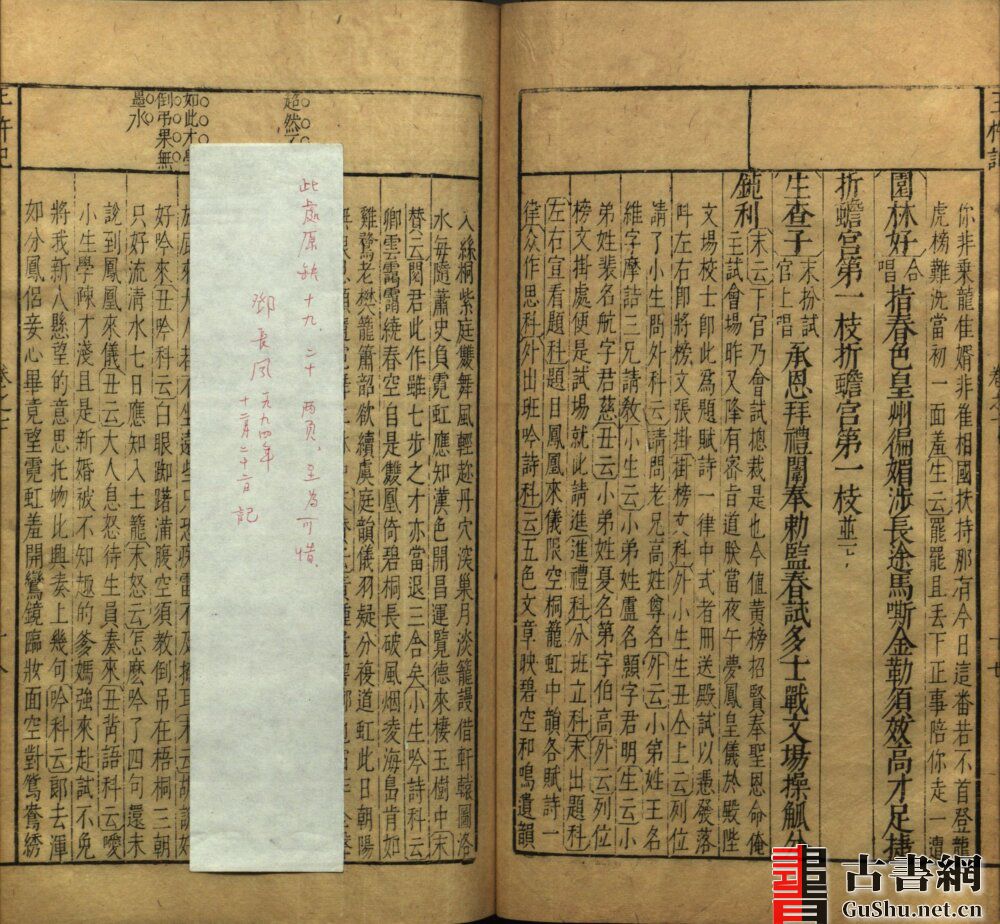 你非乘龍佳婿非隹相國扶持那有今日這番若不首登龍
虎榜難洗當初一面羞生云罷罷且丟下正事陪你走一遭
園林好合唱指春色皇州徧媚涉長途馬嘶金勒須效高才足捷
折蟾宮第一枝折蟾宮第一枝並下
生查子末扮試官上唱承恩拜禮闈奉勅監春試多士戰文場操觚分
鈍利末云下官乃會試總裁是也今值黃榜招賢奉聖恩命俺
主試會場昨又降有密旨道朕當夜午夢鳳皇儀於殿陛
文場校士卽此為題賦詩一律中式者冊送殿試以憑發落
呌左右卽將榜文張掛掛榜文科外小生生丑仝上云列位
請了小生問外科云請問老兄高姓尊名外云小弟姓王名
維字摩詰三兄請教小生云小弟姓盧名顥字君明生云小
弟姓裴名航字君慈丑云小弟姓夏名第字伯高外云列位
榜文掛處便是試場就此請進進禮科分班立科末出題科
左右宣看題科題目鳳凰來儀限空桐籠虹中韻各賦詩一
律众作思科外出班吟詩科云五色文章映碧空和鳴遺韻
超然
如此才學
倒弔果無
墨水
入絲桐紫庭雙舞風輕趂丹穴深巢月淡籠謾借軒轅圖洛
水每隨蕭史負霓虹應知漢色開昌運覽德來棲玉樹中末
賛云閱君此作雖七步之才亦當退三合矣小生吟詩科云
卿雲靄靄繞春空自是雙凰倚碧桐長破風烟凌海島肯如
雞鶩老樊籠簫韶欲續虞庭韻儀羽疑分後道虹此日朝陽
好吟來丑吟科云白眼踟躇滿腹空須教倒吊在梧桐三朝
只好流清水七日應知入土籠末怒云怎麽吟了四句還未
說到鳳凰來儀丑云大人息怒待生員奏來丑背語科云噯
小生學疎才淺且是新婚被不知趣的爹媽強來赴試不免
將我新八懸望的意思托物比興奏上幾何吟科云郎去渾
如分鳳侶妾心畢竟望霓虹羞開鸞鏡臨妝面空對鴛鴦綉
此處原缺十九、二十兩页，至為可惜。
鄧長風一九九四年
十二月二十二日記
古書網
GuShu.net.cn